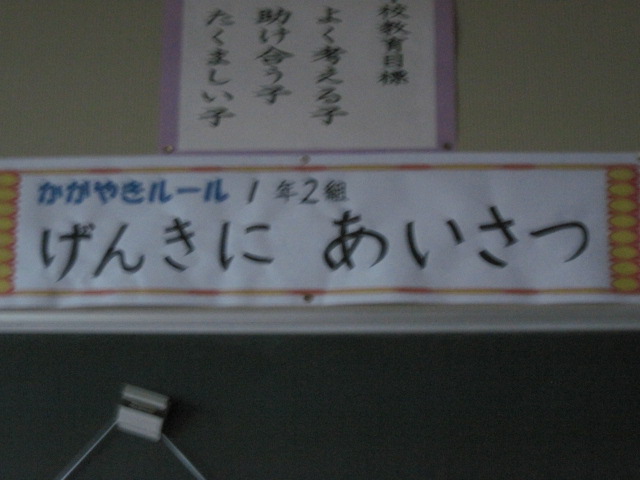 校教育目標
よく考える子
助け合う子
たくましい子
かがやきルール 1年2組
げんきに あいさつ